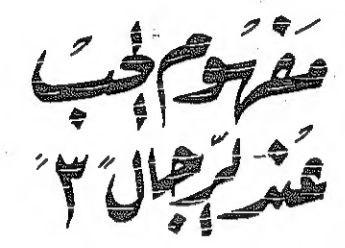 مفهوم الحب
عند الرجال "٣"